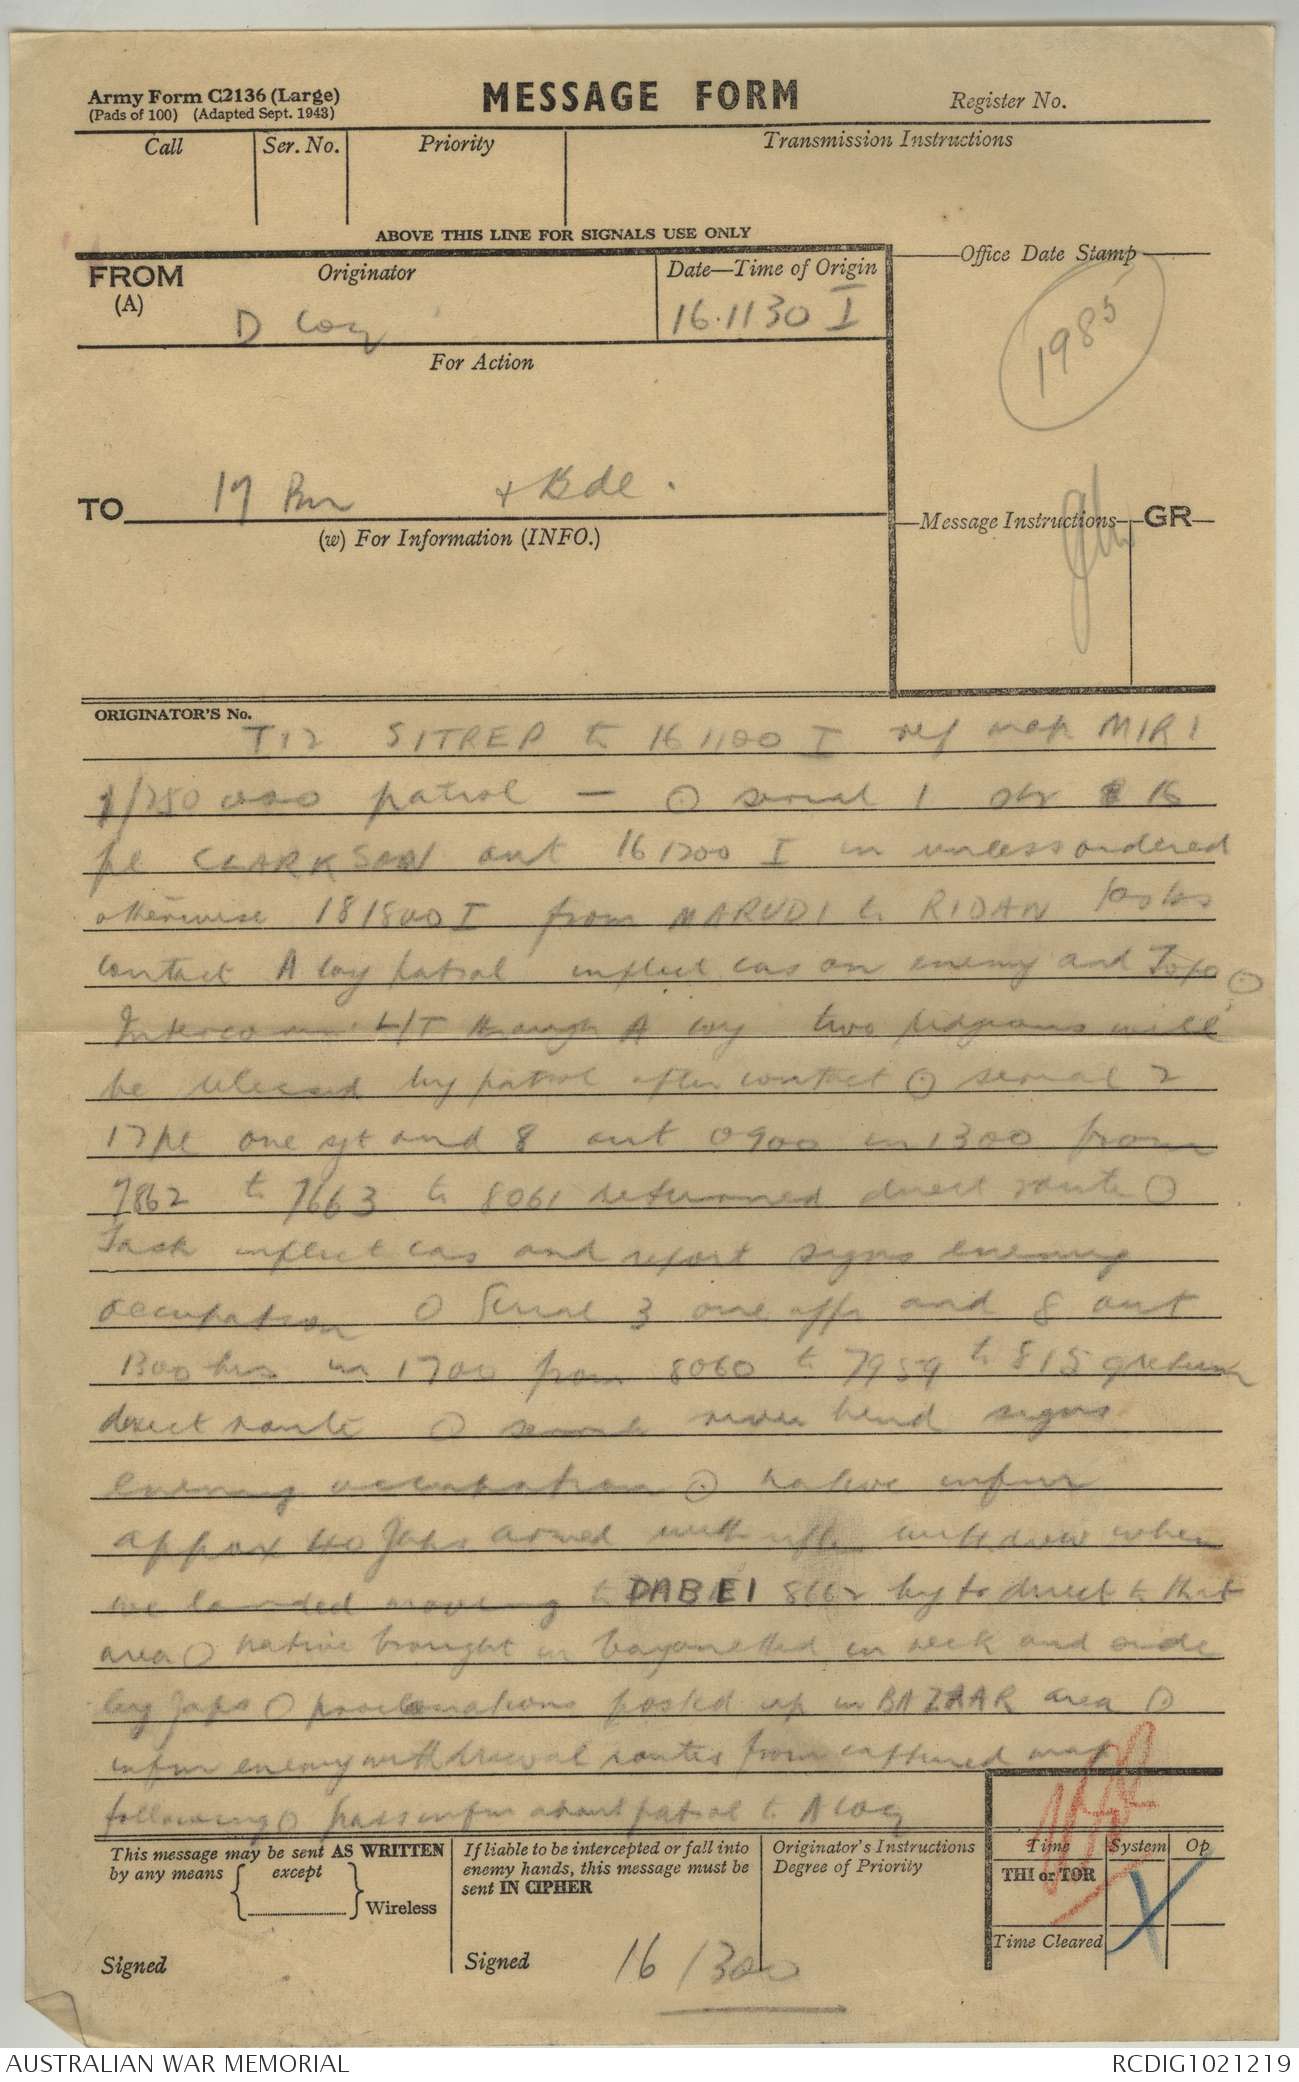 Army Form C2136 (Large)
(Pads of 100) (Adapted Sept. 1943)
MESSAGE FORM
Register No.
Call
Ser. No.
Priority
Transmission Instructions
ABOVE THIS LINE FOR SIGNALS USE ONLY
FROM
(A)
Originator
D Coy
Date—Time of Origin
16.1130 I
Office Date Stamp
1985
For Action
TO
17 Bn + Bde.
(w) For Information (INFO.)
Message Instructions
GR
ORIGINATOR'S No.
T12 SITREP to 161100 I ref map MIRI
1/250000 patrol — ⊙ serial 1 str 16
pl CLARKSON out 161200 I in unless ordered
otherwise 181800 I from MARUDI to RIDAN tasks
contact A Coy patrol inflict cas on enemy and Topo ⊙
Intercomn L/T through A Coy two pidgeons will
be released by patrol after contact ⊙ serial 2
17 pl one sgt and 8 out 0900 in 1300 from
7862 to 7663 to 8061 returned direct route ⊙
Task inflict cas and report signs enemy
occupation ⊙ Serial 3 one offr and 8 out
1300 hrs in 1700 from 8060 to 7959 to 8159 return
direct route ⊙ search river bend signs
enemy occupation ⊙ native infm
approx 40 Japs armed with rifles withdrew when
we landed moving to DABEI 8662 by tr direct to that
area ⊙ native brought in bayonetted in neck and side
by Japs ⊙ proclamations posted up in BAZAAR area ⊙
infm enemy withdrawal routes from captured map
following ⊙ pass infm about patrol to A Coy
This message may be sent AS WRITTEN
by any means except
Wireless
Signed
If liable to be intercepted or fall into
enemy hands, this message must be
sent IN CIPHER
Signed
16 1300
Originator's Instructions
Degree of Priority
Time
System
Op
THI or TOR
Time Cleared
AUSTRALIAN WAR MEMORIAL
RCDIG1021219